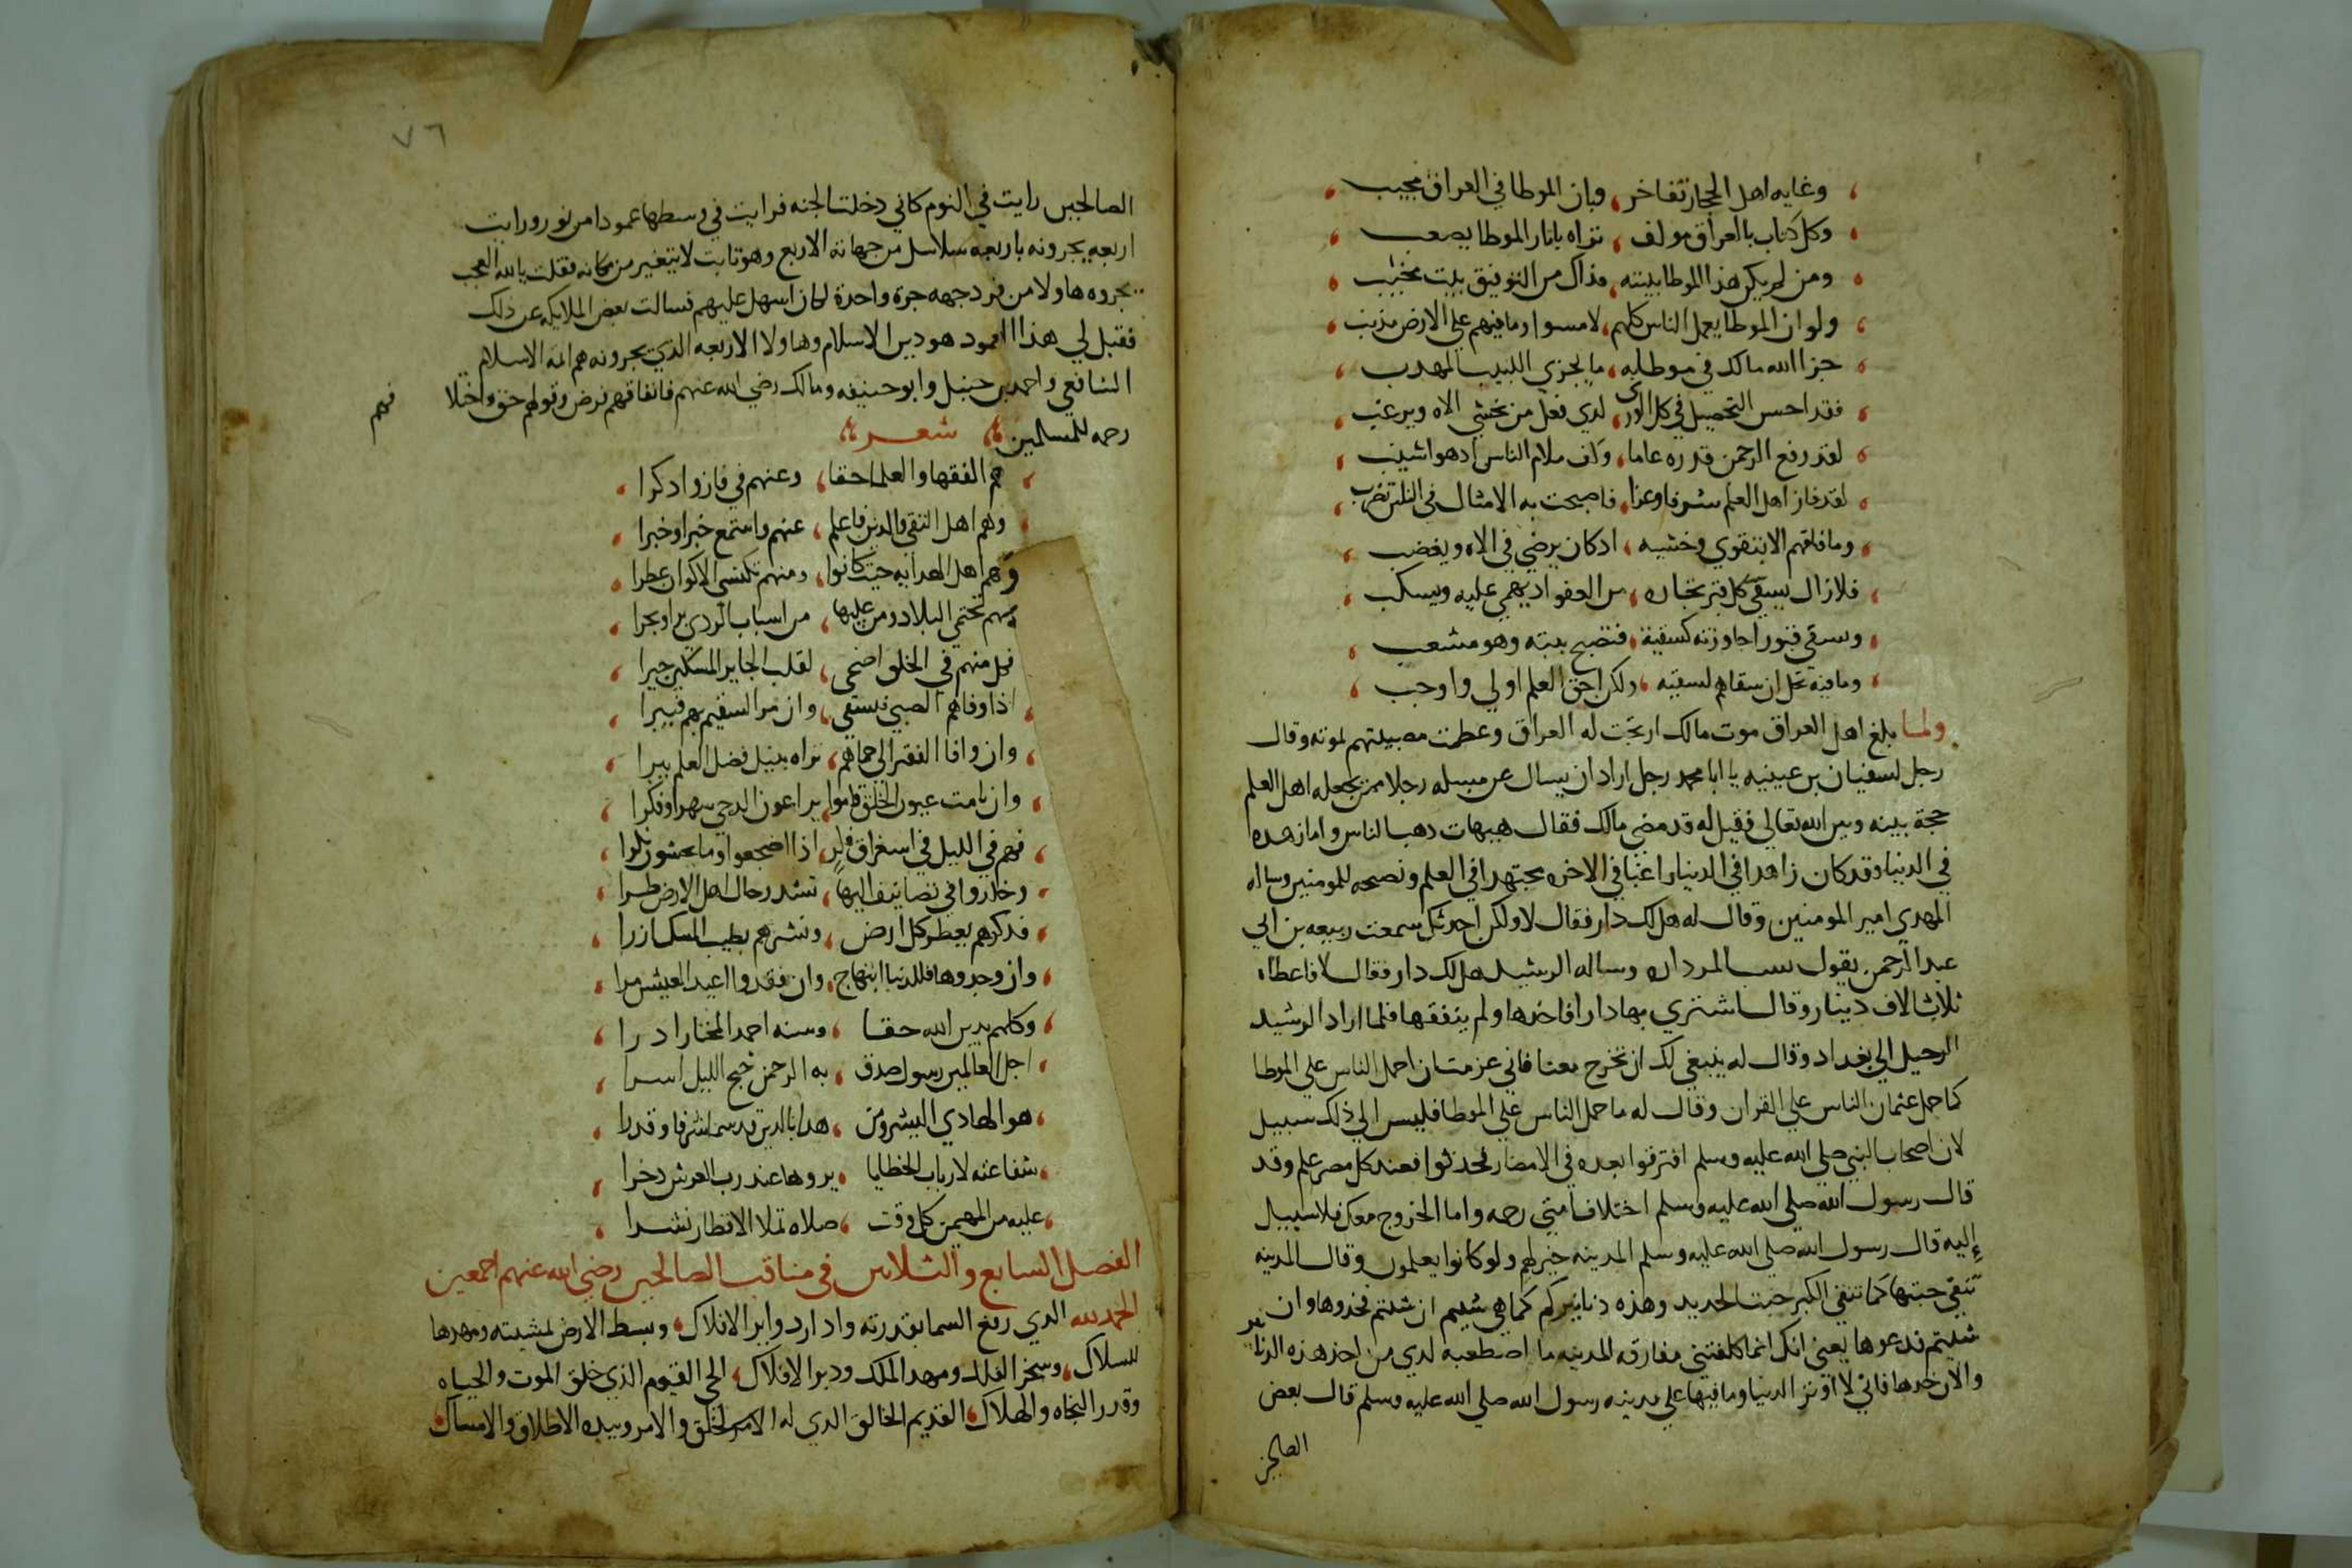 وغايه اهل الحجاز تفاخر، وبان الموطا في العراق مجيب
وكل كتاب بالعراق مولف، تراه باثار الموطا يصعب
ومن لم يكن هذا الموطا ببيته، فذاك من التوفيق بيت مخيب
ولو ان الموطا يعمل الناس كلهم، لامسوا وما فيهم على الارض مذنب
جزا الله مالك في موطايه، ما يجزي اللبيب المهذب
فقد احسن التحصيل في كل الورى، لدي فعل من يخشي الاه ويرغب
لقد رفع الرحمن قدره عاما، ملام الناس اد هو اشيب
لقد فاز اهل العلم شرفا وعزا، فاصبحت به الامثال في الناس تضرب
وما فاقهم الا بتقوي وخشيه، ادكان يرضي في الاه ويغضب
فلا زال يسقي كل قبر بحاره، من العفو اد يهمي عليه ويسكب
وسقي قبورا جاوزته كسقية، فتصبح بيته وهو مشعب
وما فيه بخل ان سقاهم لسقيه، ولكن حق العلم اولي واوجب
ولما بلغ اهل العراق موت مالك ارتجت له العراق وعظمت مصيبتهم لموته وقال
رجل لسفيان بن عيينه يا ابا محمد رجل اراد ان يسال عن مسله رجلا ممن يجعله اهل العلم
حجة بينه وبين الله تعالي فقيل له قد مضي مالك فقال هيهات دهب الناس وما ازهده
في الدنيا وقد كان زاهدا في الدنيا راغبا في الاخره مجتهدا في العلم ونصحه للمومنين وساله
المهدي امير المومنين وقال له هل لك دار فقال لا ولكن احدثك سمعت ربيعه بن ابي
عبد الرحمن يقول نسب المرداره وساله الرشيد هل لك دار فقال لا فاعطاه
ثلاث الاف دينار وقال اشتري بها دارا فاخدها ولم ينفقها فلما اراد الرشيد
الرحيل الي بغداد وقال له ينبغي لك ان تخرج معنا فاني عزمت ان احمل الناس علي الموطا
كما حمل عثمان الناس علي القران وقال له ما حمل الناس علي الموطا فليس الي ذلك سبيل
لان اصحاب النبي صلي الله عليه وسلم افترقوا بعده في الامصار فحدثوا فعند كل مصر علم وقد
قال رسول الله صلي الله عليه وسلم اختلاف امتي رحمه واما الخروج معك فلا سبيل
إليه قال رسول الله صلي الله عليه وسلم المدينه خير لهم ولو كانوا يعلمون وقال المدينه
تنفي خبثها كما تنفي الكير خبث الحديد وهذه دنانيركم كما هي شيتم ان شيتم فخدوها وان
شيتم فدعوها يعني انك انما كلفتني مفارقه المدينه ما اصطعبه لدي من اخذ هذه الدنانير
والان خدها فاني لا اوثر الدنيا وما فيها علي مدينه رسول الله صلي الله عليه وسلم قال بعض
الصالحين
٧٦
الصالحين رايت في النوم كاني دخلت الجنه فرايت في وسطها عمودا من نور ورايت
اربعه يجرونه باربعه سلاسل من جهاته الاربع وهو ثابت لا يتغير من مكانه فقلت يالله العجب
يجروه هاولا من فرد جهه جرة واحدة لكان اسهل عليهم فسالت بعض الملايكه عن ذلك
فقيل لي هذا العمود هو دين الاسلام وهاولا الاربعه الذي يجرونه هم ايمه الاسلام
الشافعي واحمد بن حنبل وابو حنيفه ومالك رضي الله عنهم فاتفاقهم فرض وقولهم حق واختلا فهم
رحمه للمسلمين شعر
هم الفقها والعلما حقا، وعنهم في فاز واد كرا
وهم اهل التقي والدين فاعلم، عنهم واستمع خبرا وخبرا
وهم اهل الهدايه حيث كانوا، ومنهم تكتسي الاكوان عطرا
بهم تحتمي البلاد ومن عليها، من اسباب الردي برا وبحرا
فكل منهم في الخلق اضحي، لقلب الحاير المسكين جبرا
اذا وفاهم الصبي فيستقي، وان مر السقيم بهم فيبرا
وان وافا الفقير الي حماهم، تراه بنيل فضل العلم يبرا
وان نامت عيون الخلق قاموا، يراعون الدجي سهرا وفكرا
فهم في الليل في استغراق، اذا اضجعوا وما يحشون نكرا
وخلدوا في تصانيف اليها، تشد رحال اهل الارض طرا
فذكرهم يعطر كل ارض، ونشرهم بطيب المسك ازرا
وان وجدوها فللدنيا ابتهاج، وان فقدوا اعيد العيش مرا
وكلهم بدين الله حقا، وسنه احمد المختار ادرا
اجل العالمين رسول صدق، به الرحمن جنح الليل اسرا
هو الهادي البشير ومن، هدانا بالدين قد سما شرفا وقدرا
شفاعته لارباب الخطايا، يروها عند رب العرش دخرا
عليه من المهيمن كل وقت، صلاه تملا الاقطار نشرا
الفصل السابع والثلاثين في مناقب الصالحين رضي الله عنهم اجمعين
الحمد لله الدي رفع السما بقدرته وادار دواير الافلاك، وبسط الارض بمشيته ومهدها
للسلاك، وسخر الفلك ومهد الملك ودبر الافلاك، الحي القيوم الذي خلق الموت والحياه
وقدر النجاه والهلاك، القديم الخالق الدي له الامر الخلق والامر وبيده الاطلاق والامساك